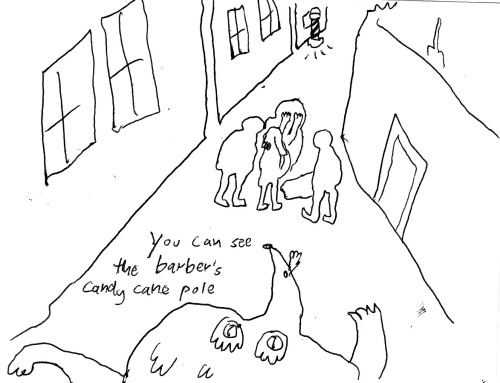 You can see
the barber's
candy cane pole